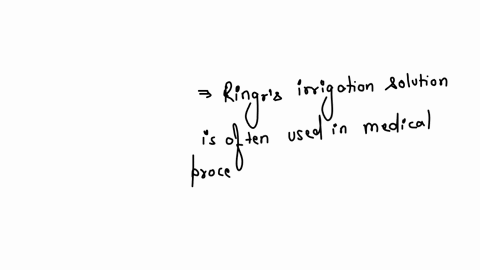 ⇒ Ringr's irrigation solution
is often used in medical
proce